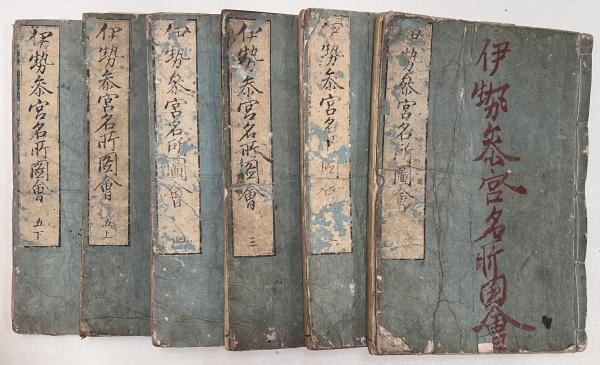 伊勢参宮名所圖會
伊勢参宮名所圖會
伊勢参宮名所
伊勢参宮名所圖會
三
伊勢参宮名所圖會
四
伊勢参宮名所圖會
五上
伊勢参宮名所圖會
五下